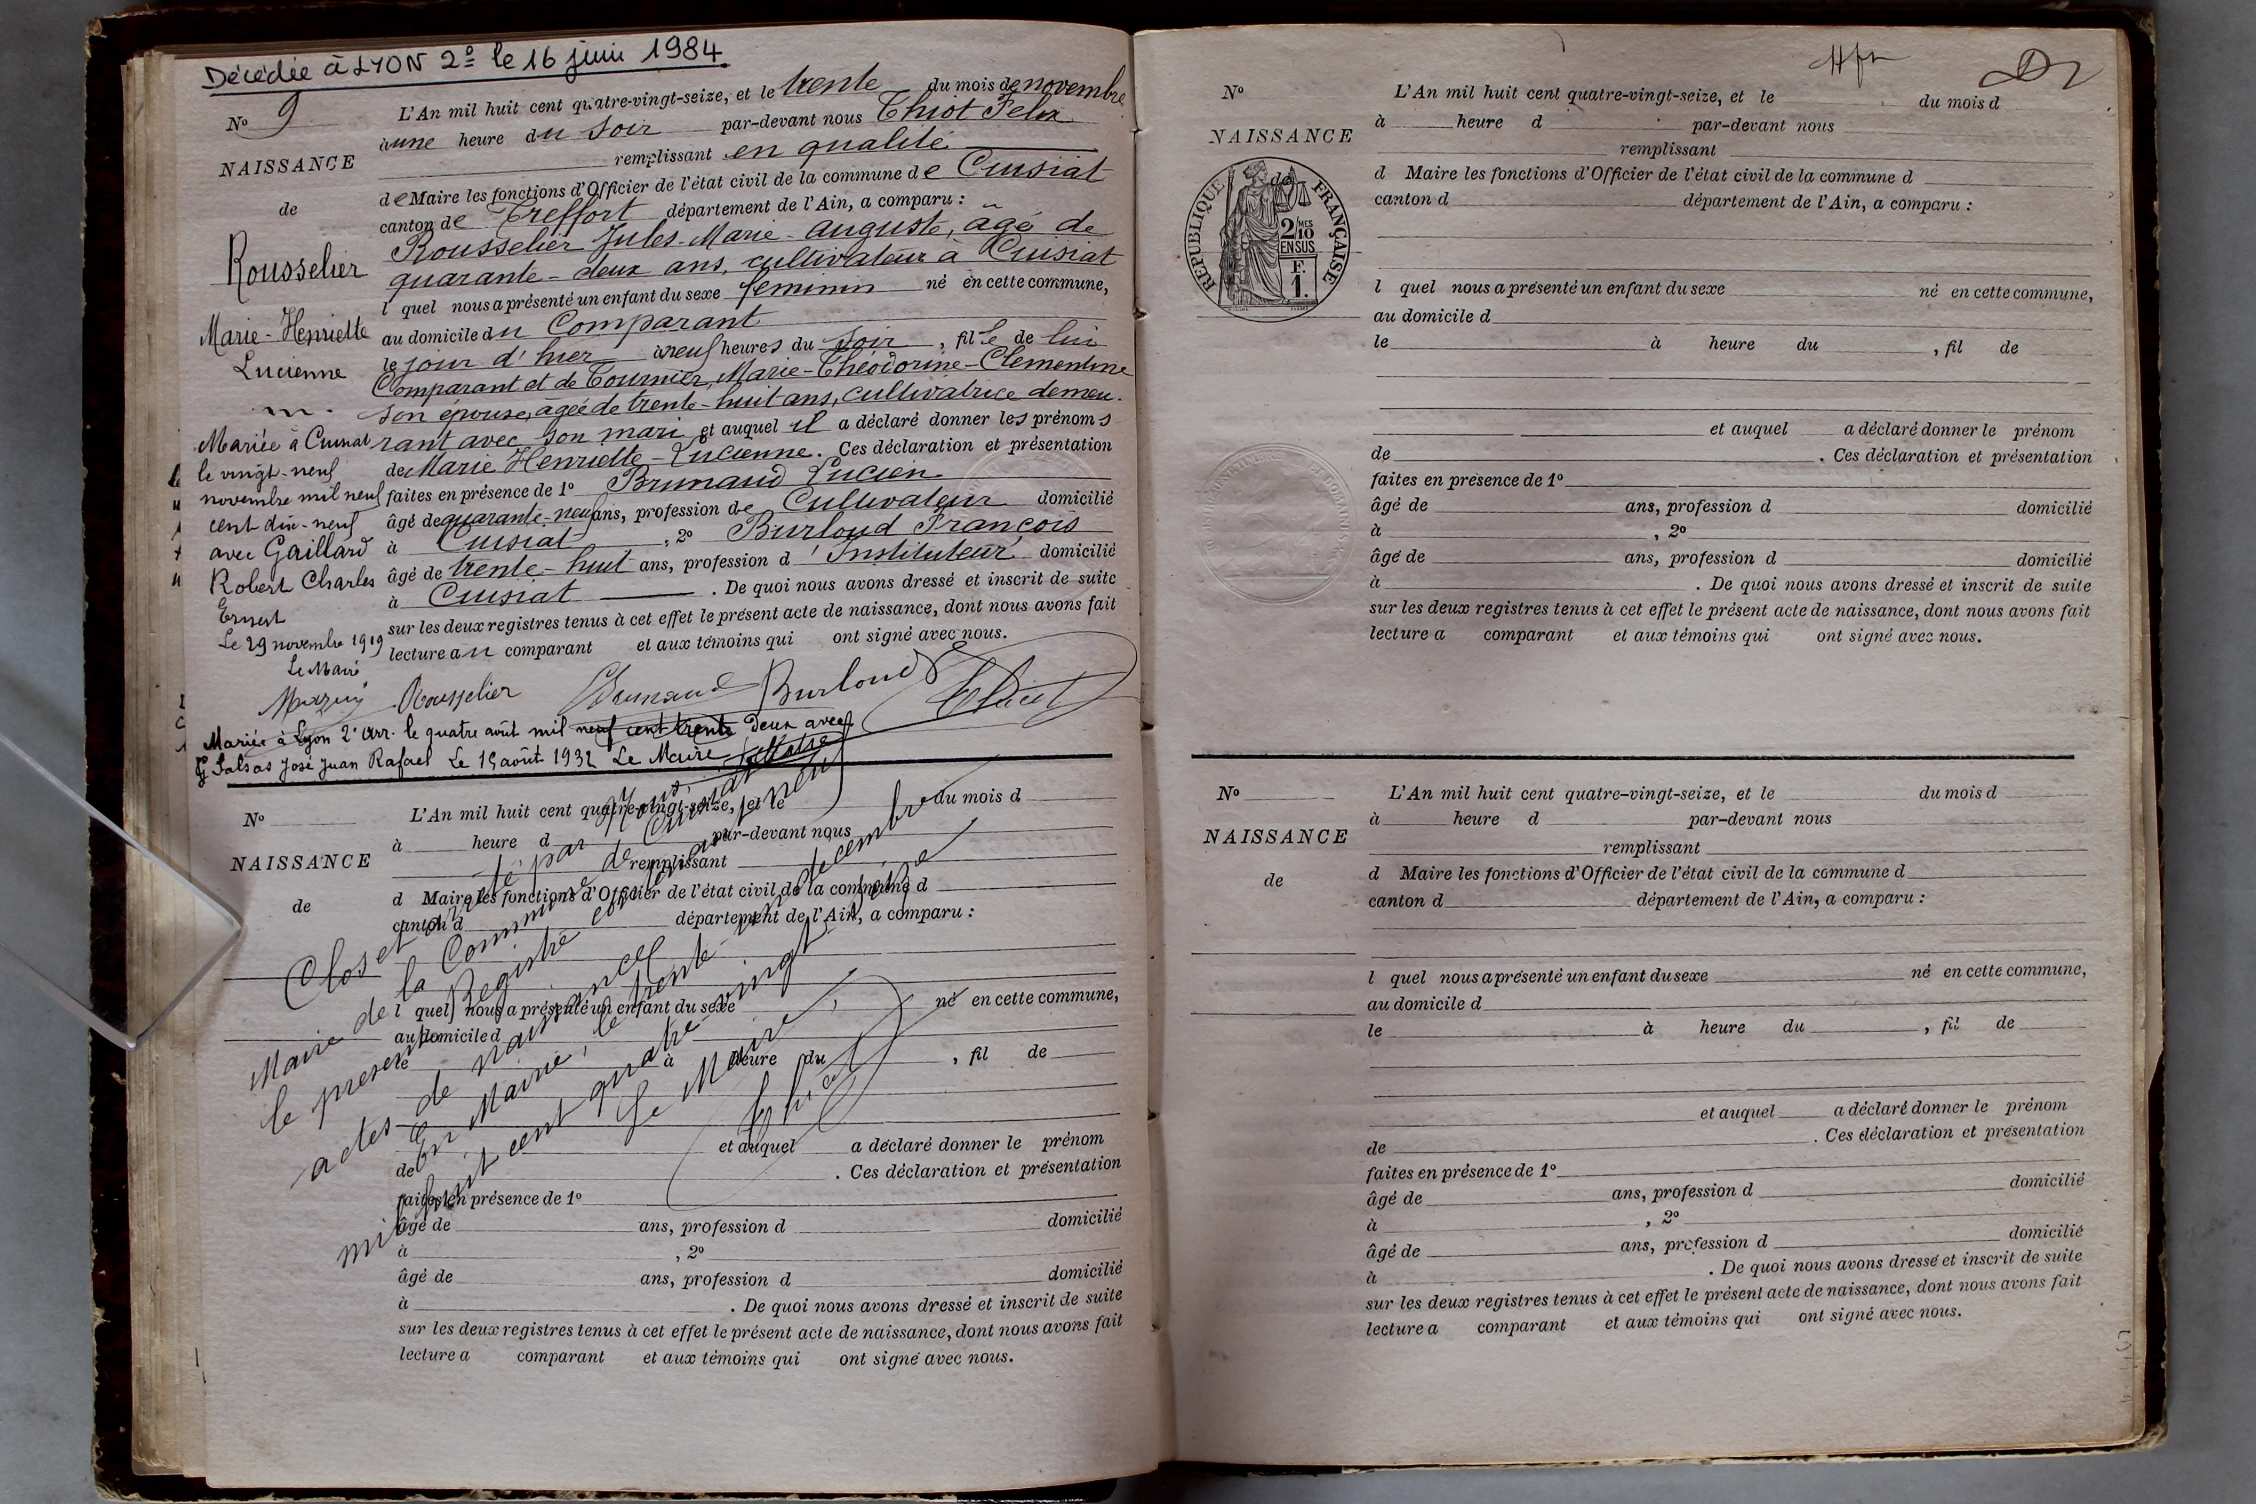 Décédée à LYON 2e le 16 juin 1984.
No 9
NAISSANCE
de
Rousselier
Marie-Henriette
Lucienne
L'An mil huit cent quatre-vingt-seize, et le trente du mois de novembre
à une heure du soir par-devant nous Thiot Felix
remplissant en qualité
de Maire les fonctions d'Officier de l'état civil de la commune de Cuisiat
canton de Treffort département de l'Ain, a comparu :
Rousselier Jules-Marie-auguste, âgé de
quarante-deux ans, cultivateur à Cuisiat
l quel nous a présenté un enfant du sexe feminin né en cette commune,
au domicile du Comparant
le jour d'hier à neuf heures du soir, fille de lui
Comparant et de Tournier, Marie-Théodorine-Clementine
son épouse, âgée de trente-huit ans, cultivatrice demeu-
rant avec son mari et auquel il a déclaré donner les prénoms
de Marie Henriette-Lucienne. Ces déclaration et présentation
faites en présence de 1o Brunaud Lucien
âgé de quarante-neuf ans, profession de Cultivateur domicilié
à Cuisiat, 2o Burloud François
âgé de trente-huit ans, profession d'Instituteur domicilié
à Cuisiat. De quoi nous avons dressé et inscrit de suite
sur les deux registres tenus à cet effet le présent acte de naissance, dont nous avons fait
lecture au comparant et aux témoins qui ont signé avec nous.
Rousselier Brunaud Burloud Thiot
Mariée à Cuisiat
le vingt-neuf
novembre mil neuf
cent dix-neuf
avec Gaillard
Robert Charles
Ernest
Le 29 novembre 1919
Le Maire
Mariée à Lyon 2e arr. le quatre août mil neuf cent trente deux avec
Salsas José Juan Rafael Le 15 août 1932 Le Maire
No
NAISSANCE
de
L'An mil huit cent quatre-vingt-seize, et le du mois d
à heure d par-devant nous
remplissant
d Maire les fonctions d'Officier de l'état civil de la commune d
canton d département de l'Ain, a comparu :
l quel nous a présenté un enfant du sexe né en cette commune,
au domicile d
le à heure du , fil de
et auquel a déclaré donner le prénom
de . Ces déclaration et présentation
faites en présence de 1o
âgé de ans, profession d domicilié
à , 2o
âgé de ans, profession d domicilié
à . De quoi nous avons dressé et inscrit de suite
sur les deux registres tenus à cet effet le présent acte de naissance, dont nous avons fait
lecture a comparant et aux témoins qui ont signé avec nous.
Clos et arrêté par Nous,
Maire de la Commune de Cuisiat
le present Registre contenant neuf
actes de naissances
En Mairie, le trente-un décembre
mil huit cent quatre-vingt-seize
Le Maire,
Thiot
No
NAISSANCE
REPUBLIQUE FRANÇAISE
2/10MES
EN SUS
F.
1.
L'An mil huit cent quatre-vingt-seize, et le du mois d
à heure d par-devant nous
remplissant
d Maire les fonctions d'Officier de l'état civil de la commune d
canton d département de l'Ain, a comparu :
l quel nous a présenté un enfant du sexe né en cette commune,
au domicile d
le à heure du , fil de
et auquel a déclaré donner le prénom
de . Ces déclaration et présentation
faites en présence de 1o
âgé de ans, profession d domicilié
à , 2o
âgé de ans, profession d domicilié
à . De quoi nous avons dressé et inscrit de suite
sur les deux registres tenus à cet effet le présent acte de naissance, dont nous avons fait
lecture a comparant et aux témoins qui ont signé avec nous.
No
NAISSANCE
de
L'An mil huit cent quatre-vingt-seize, et le du mois d
à heure d par-devant nous
remplissant
d Maire les fonctions d'Officier de l'état civil de la commune d
canton d département de l'Ain, a comparu :
l quel nous a présenté un enfant du sexe né en cette commune,
au domicile d
le à heure du , fil de
et auquel a déclaré donner le prénom
de . Ces déclaration et présentation
faites en présence de 1o
âgé de ans, profession d domicilié
à , 2o
âgé de ans, profession d domicilié
à . De quoi nous avons dressé et inscrit de suite
sur les deux registres tenus à cet effet le présent acte de naissance, dont nous avons fait
lecture a comparant et aux témoins qui ont signé avec nous.